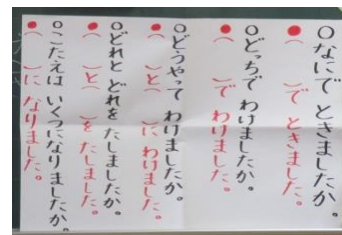 ○なにで ときましたか。
●( )で ときました。
○どっちで わけましたか。
●( )で わけました。
○どうやって わけましたか。
●( )と( )に わけました。
○どれと どれを たしましたか。
●( )と( )を たしました。
○こたえは いくつになりましたか。
●( )に なりました。